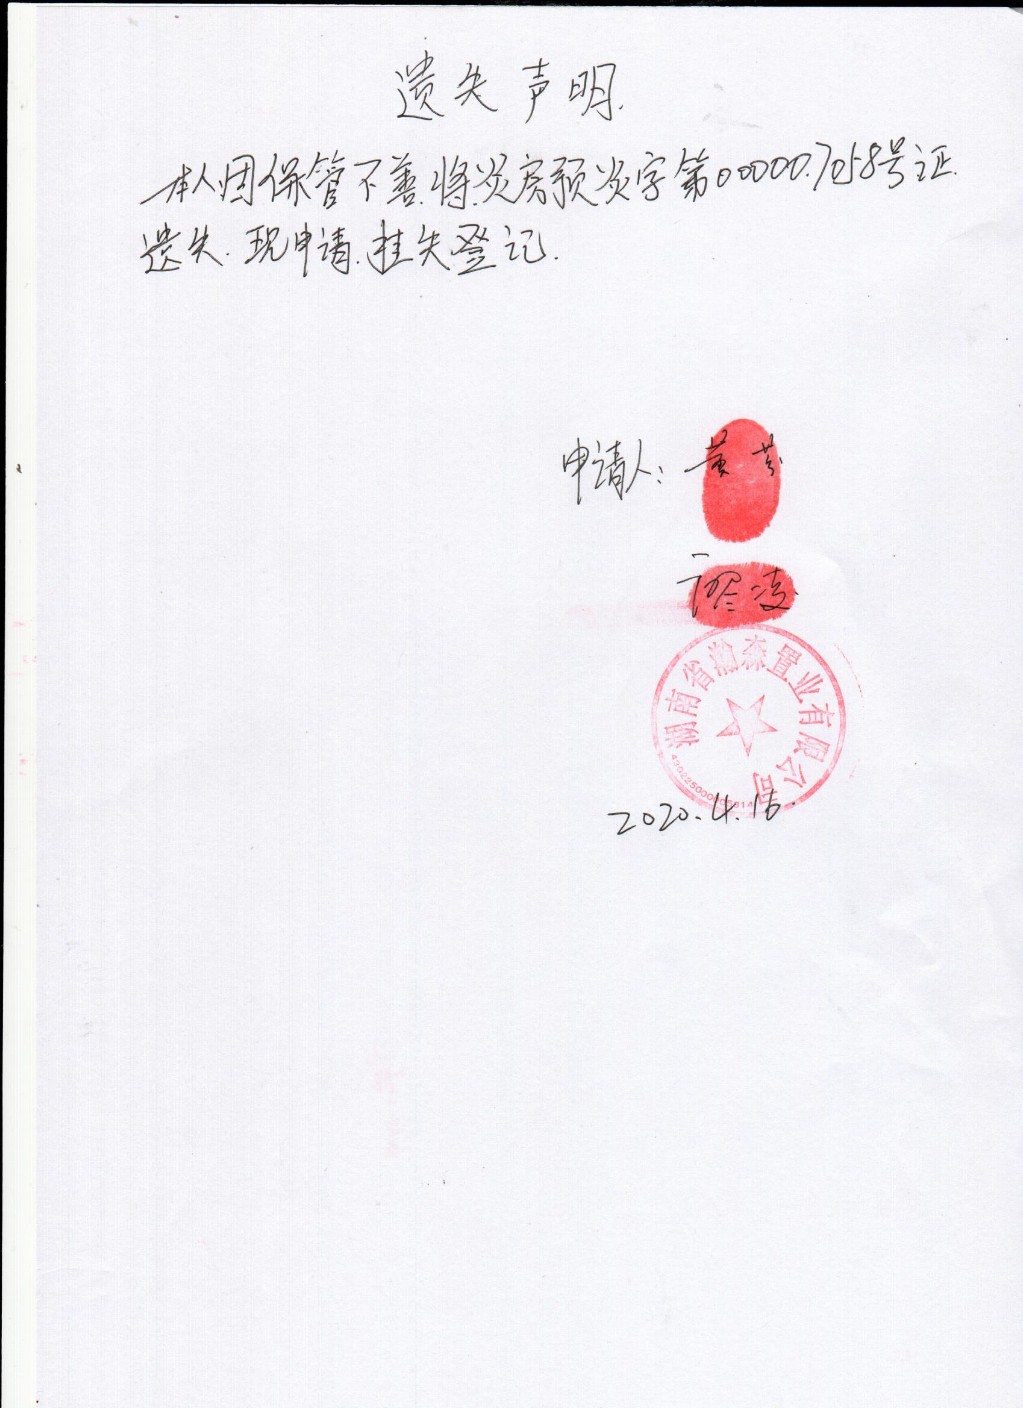 遗失声明.
本人因保管不善.将炎房预炎字第000007058号证.
遗失.现申请.挂失登记.
申请人: 黄芬
廖凌
湖南省瀚森置业有限公司
2020.4.16.